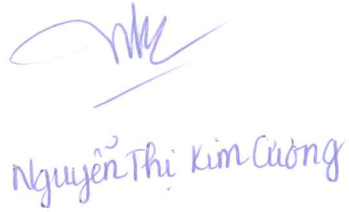 Nguyễn Thị Kim Cương